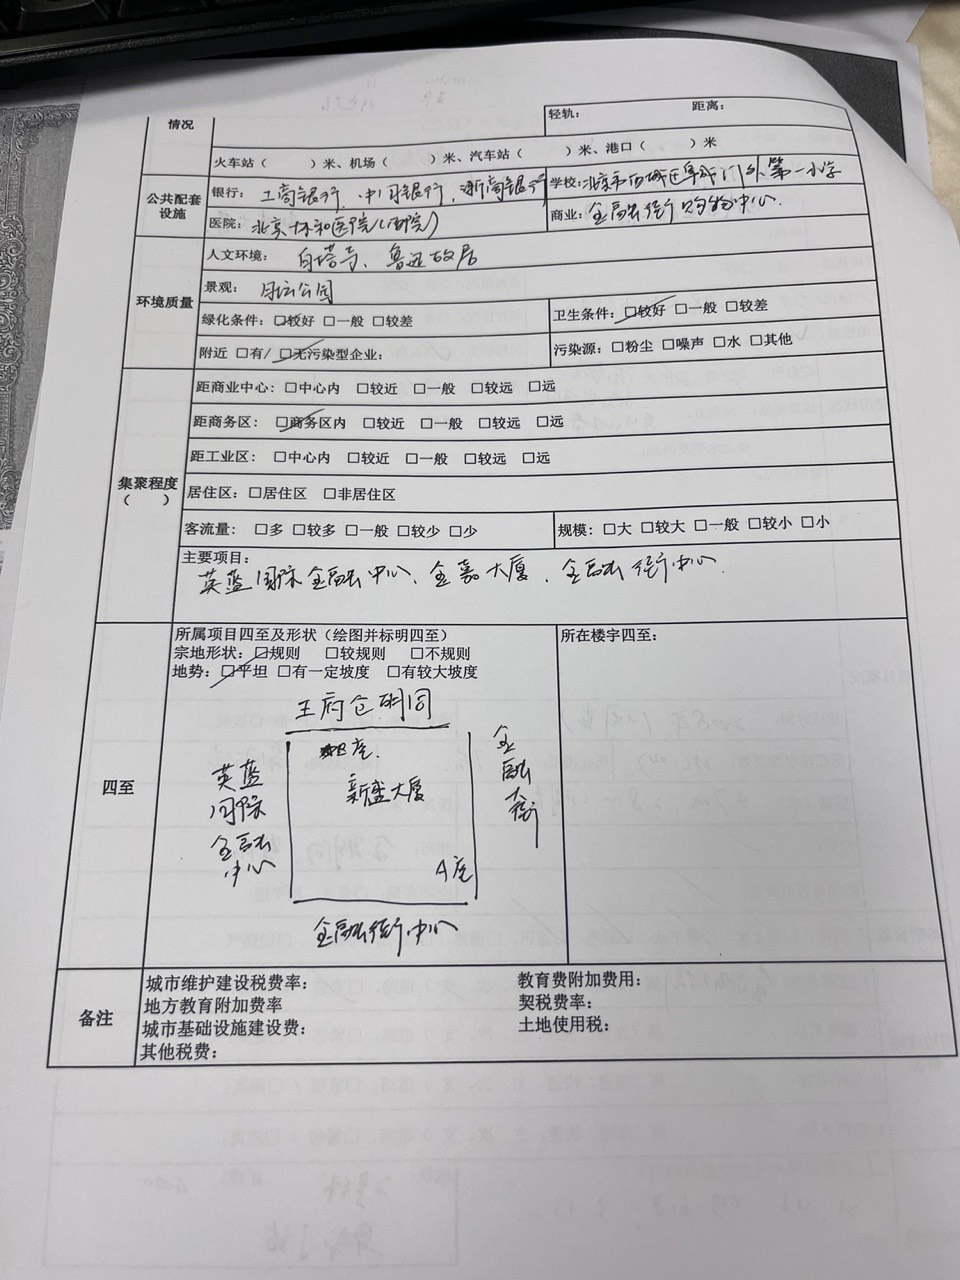 情况
轻轨： 距离：
火车站（ ）米、机场（ ）米、汽车站（ ）米、港口（ ）米
公共配套设施
银行：工商银行、中国银行、浙商银行 学校：北京市西城区阜成门外第一小学
医院：北京协和医院（西院） 商业：金融街购物中心
环境质量
人文环境：白塔寺、鲁迅故居
景观：月坛公园
绿化条件：☑较好 □一般 □较差 卫生条件：☑较好 □一般 □较差
附近 □有/ ☑无污染型企业： 污染源：□粉尘 □噪声 □水 □其他
集聚程度（ ）
距商业中心：□中心内 □较近 □一般 □较远 □远
距商务区：☑商务区内 □较近 □一般 □较远 □远
距工业区：□中心内 □较近 □一般 □较远 □远
居住区：□居住区 □非居住区
客流量：□多 □较多 □一般 □较少 □少 规模：□大 □较大 □一般 □较小 □小
主要项目：
英蓝国际金融中心、金嘉大厦、金融街中心
四至
所属项目四至及形状（绘图并标明四至） 所在楼宇四至：
宗地形状：☑规则 □较规则 □不规则
地势：☑平坦 □有一定坡度 □有较大坡度
王府仓胡同
B座
新盛大厦
A座
英蓝国际金融中心
金融大街
金融街中心
备注
城市维护建设税费率： 教育费附加费用：
地方教育附加费率 契税费率：
城市基础设施建设费： 土地使用税：
其他税费：